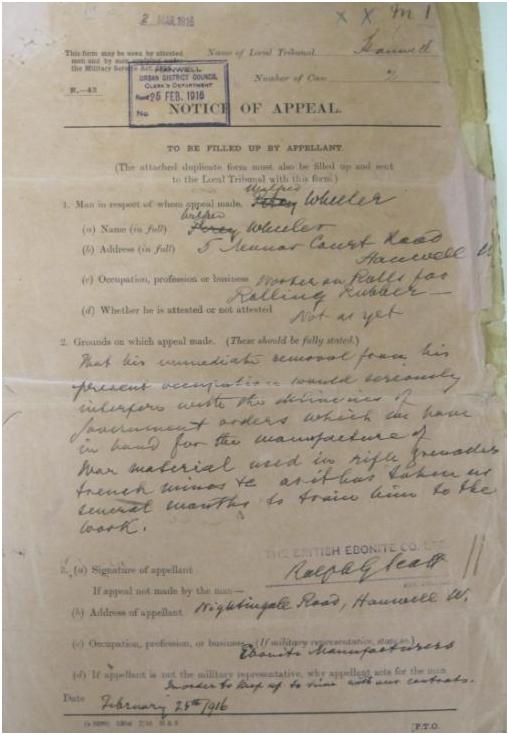 2 MAR 1916
X X M 1
This form may be used by attested
men and by men
the Military Service Act,
Name of Local Tribunal Hanwell
Number of Case 2
HANWELL
URBAN DISTRICT COUNCIL
CLERK'S DEPARTMENT
Recd 26 FEB. 1916
No.
R.—43
NOTICE OF APPEAL.
TO BE FILLED UP BY APPELLANT.
(The attached duplicate form must also be filled up and sent
to the Local Tribunal with this form.)
Wilfred
1. Man in respect of whom appeal made. Percy Wheeler
Wilfred
(a) Name (in full) Percy Wheeler
(b) Address (in full) 5 Manor Court Road
Hanwell W
(c) Occupation, profession or business Worker on Rolls for
Rolling Rubber —
(d) Whether he is attested or not attested Not as yet
2. Grounds on which appeal made. (These should be fully stated.)
That his immediate removal from his
present occupation would seriously
interfere with the deliveries of
Government orders which we have
in hand for the manufacture of
War material used in rifle grenades
trench mines &c as it has taken us
several months to train him to the
work.
THE BRITISH EBONITE CO. LTD.
3. (a) Signature of appellant Ralph G Scott
If appeal not made by the man—
(b) Address of appellant Nightingale Road, Hanwell W.
(c) Occupation, profession, or business (If military representative, state so.)
Ebonite Manufacturers
(d) If appellant is not the military representative, why appellant acts for the man
In order to keep up to time with our contracts.
Date February 25th 1916
[P.T.O.